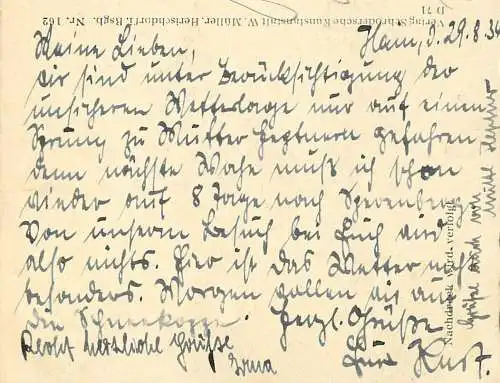 Verlag Schrödersche Kunstanstalt W. Müller, Herischdorf i. Rsgb. Nr. 162
D 71
Hain, d. 29.8.34
Meine Lieben,
wir sind unter Berücksichtigung der
unsicheren Wetterlage nur auf einen
Sprung zu Mutter gefahren
denn nächste Woche muß ich schon
wieder auf 8 Tage nach
Von unserm Besuch bei Euch wird
also nichts. Hier ist das Wetter
besonders. Morgen wollen wir auf
die Schneekoppe. Herzl. Grüße
Euer Kurt.
herzliche Grüße
Erna
Nachdruck wird verfolgt
Grüße auch von